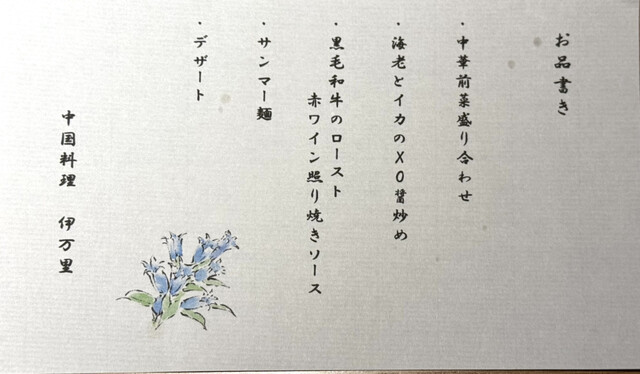 お品書き
・中華前菜盛り合わせ
・海老とイカのXO醤炒め
・黒毛和牛のロースト
赤ワイン照り焼きソース
・サンマー麺
・デザート
中国料理 伊万里